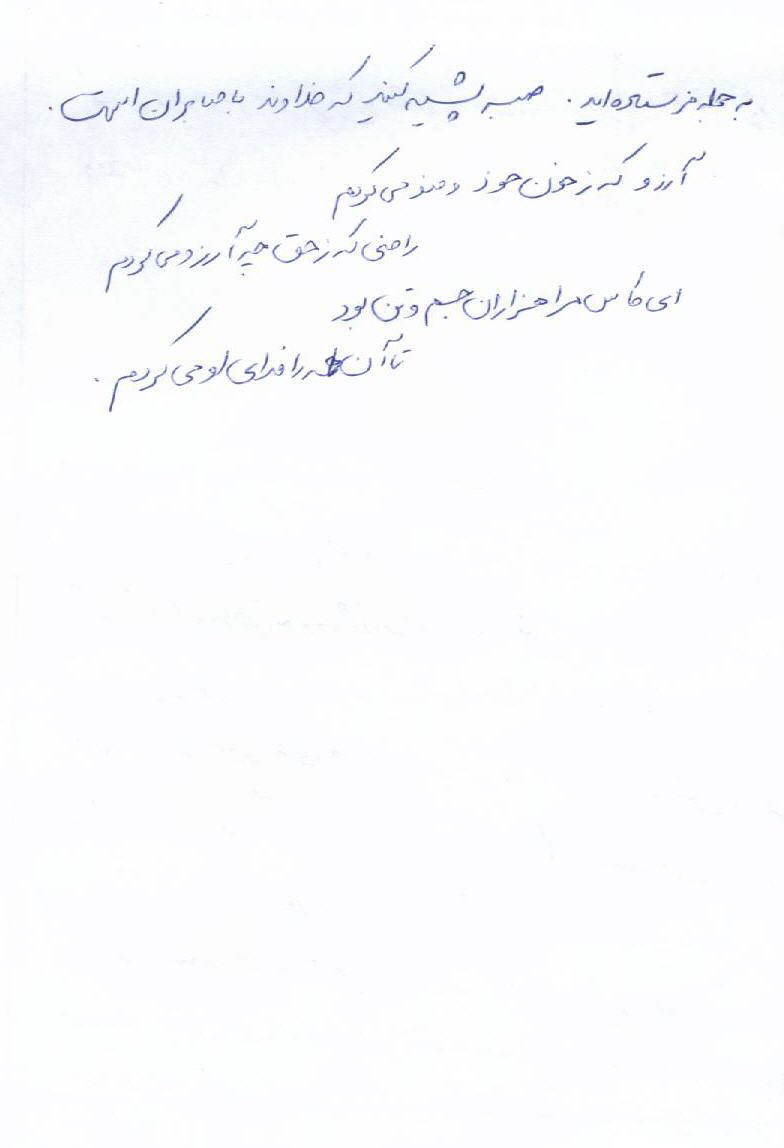 به حجله فرستاده‌اید. صبر پیشه کنید که خداوند با صابران است.
آرزو که ز خون خود وضو می‌کردم
راضی که ز حق چه آرزو می‌کردم
ای کاش مرا هزاران جسم و تن بود
تا آن همه را فدای او می‌کردم.